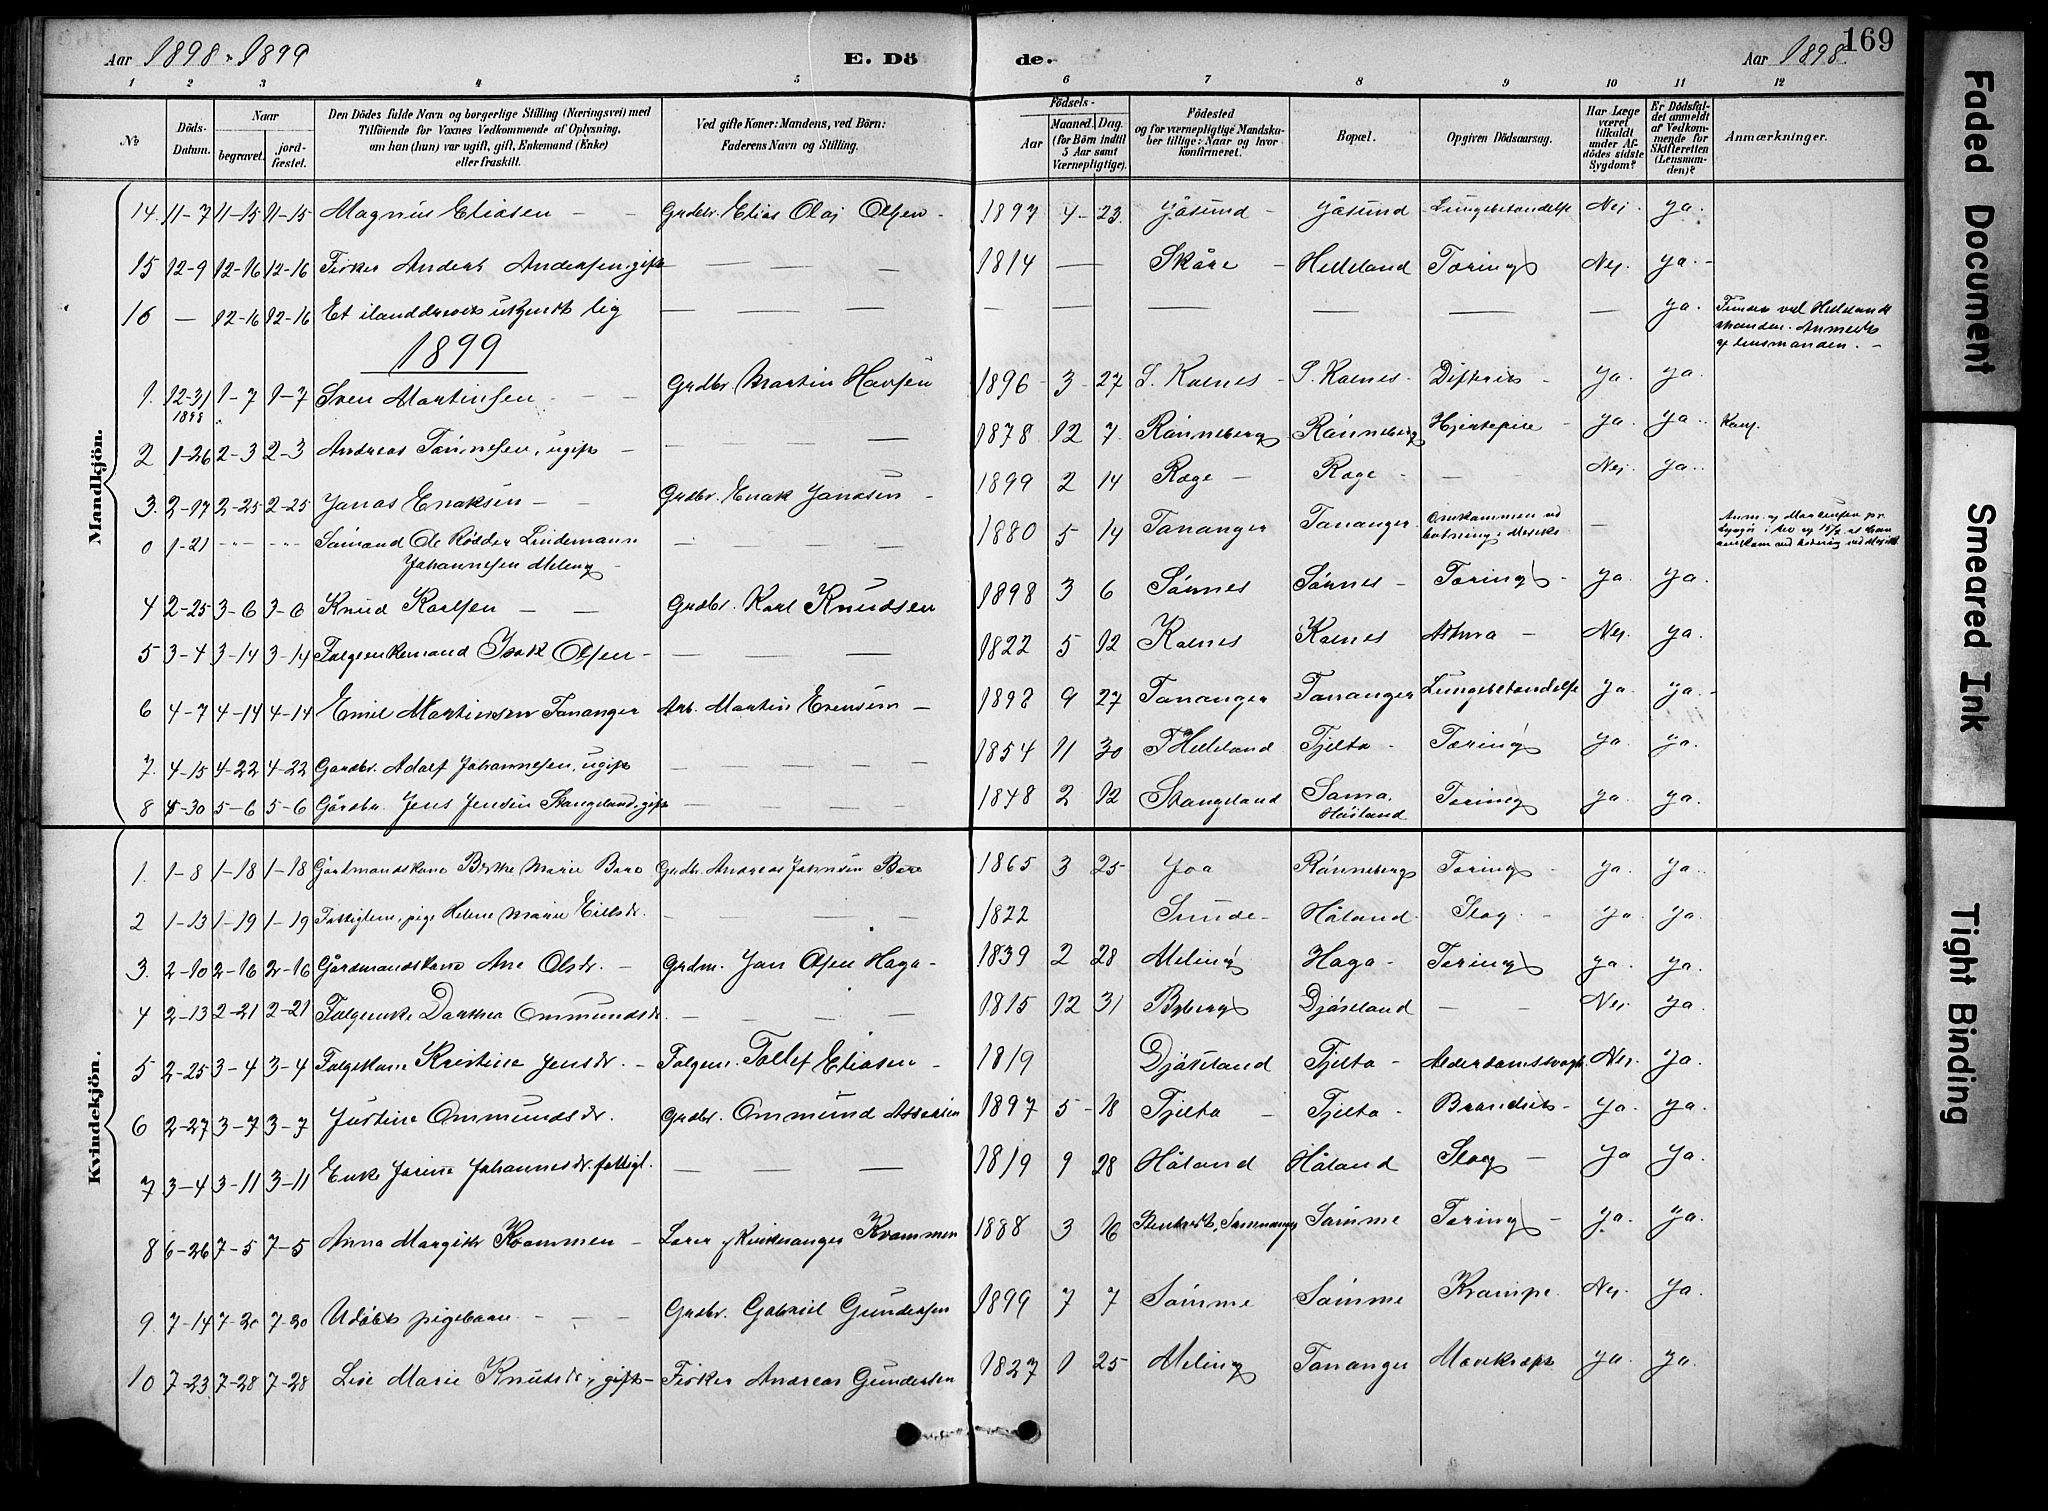 169
Aar 1898-1899 E. Döde. Aar 1898
1 2 3 4 5 6 7 8 9 10 11 12
No
Döds-Datum.
Naar
begravet.
jord-fæstet.
Den Dödes fulde Navn og borgerlige Stilling (Næringsvei) med
Tilföiende for Voxnes Vedkommende af Oplysning,
om han (hun) var ugift, gift, Enkemand (Enke)
eller fraskilt.
Ved gifte Koner: Mandens, ved Börn:
Faderens Navn og Stilling.
Födsels-
Aar
Maaned. Dag.
(for Börn indtil
5 Aar samt
Værnepligtige).
Födested
og for værnepligtige Mandska-
ber tillige: Naar og hvor
konfirmeret.
Bopæl.
Opgiven Dödsaarsag.
Har Læge
været
tilkaldt
under Af-
dödes sidste
Sygdom?
Er Dödsfal-
det anmeldt
af Vedkom-
mende for
Skifteretten
(Lensman-
den)?
Anmærkninger.
Mandkjön.
14. 11-7 11-15 11-15 Magnus Eliasen - - Grdbr. Elias Olaj Olsen - 1897 4-23. Jåsund - Jåsund Lungebetændelse Nej. ja.
15 12-9 12-16 12-16 Fisker Anders Andersen, gift — — — 1814 — Skåre - Helleland Tæring Nej. ja. -
16 — 12-16 12-16 Et ilanddrevet ukjendt lig — — — - — — — — — ja. Funden ved Hellelands
stranden. Anmeldt
af lensmanden. -
1899
1. 12-31 1898 1-7 1-7 Sven Martinsen - - Grdbr. Martin Hansen 1896 - 3-27 S. Kolnes - S. Kolnes - Difterit - ja. ja.
2 1-26 2-3 2-3 Andreas Tønnesen, ugift - — — — 1878 12 7. Rønneberg Rønneberg Hjertefeil - ja. ja.
3. 2-17 2-25 2-25 Jonas Enoksen - - Grdbr. Enok Jonassen - 1899 2 14 Ræge - Ræge - - Nej. ja.
0 1-21 Sømand Ole Rødder Lindemann
Johannesen Meling - — — — 1880 5 14 Tananger Tananger. Omkommen ved
4 2-25 3-6 3-6 Knud Karlsen - - Grdbr. Karl Knudsen 1898 3 6 Sørnes Sørnes - Tæring - ja. ja.
5 3-4 3-14 3-14 Folgeenkemand Isak Olsen - — — — 1822 5 12 Kolnes Kolnes Asthma - Nej. ja.
6 4-7 4-14 4-14 Emil Martinsen Tananger Arb. Martin Evensen - 1898 9 27 Tananger Tananger Lungebetændelse ja. ja. -
7. 4-15 4-22 4-22 Gardbr. Adolf Johannesen, ugift — — — 1854 11 30 Helleland Tjelta - Tæring ja. ja.
8 4-30 5-6 5-6 Gårdbr. Jens Jensen Stangeland, gift — — — 1848 2 12 Stangeland Soma, Tæring ja. ja.
Høiland
Kvindekjön.
1. 1-8 1-18 1-18 Gårdmandskone Birthe Marie Bore Grdbr. Andreas Johnsen Bore 1865 3 25 Joa Rønneberg Tæring - ja. ja.
2 1-13 1-19 1-19 Fattiglem, pige Helene Marie Eilsdr. — — — 1822 Sunde - Håland. Slag. - ja. ja.
3. 2-10 2-16 2-16 Gårdmandskone Ane Olsdr. - Grdm. Jon Olsen Haga - 1839 2 28 Meling Haga - Tæring ja. ja.
4 2-13 2-21 2-21 Folgeenke Dorthea Ommundsdr. — — — 1815 12 31 Byberg Djøseland - - Nej. ja.
5 2-25 3-4 3-4 Folgekone Kristine Jensdr. - Folgem. Tollef Eliasen - 1819 Djøseland Tjelta - Alderdomssvagh. Nej. ja.
6 2-27 3-7 3-7 Justine Ommundsdr. Grdbr. Ommund Assersen 1897 5-18 Tjelta - Tjelta - Brandsår - ja. ja.
7 3-4 3-11 3-11 Enke Jorine Johannesdr. fattigl. — — — 1819 9 28 Håland Håland Slag - ja ja.
8 6-26 7-5 7-5 Anna Margith Kvammen - Lærer og Kirkesanger Kvammen 1888 3 16 Samnanger Sømme Tæring - ja. ja.
9. 7-14 7-20 7-20 Udøbt pigebarn - - - Grdbr. Gabriel Gundersen 1899 7 7 Sømme Sømme Krampe. Nej. ja.
10 7-23 7-28 7-28 Lise Marie Knutsdr., gift - Fisker Andreas Gundersen 1827 1 25 Meling Tananger Mavekræft ja. ja.
Faded Document
Smeared Ink
Tight Binding